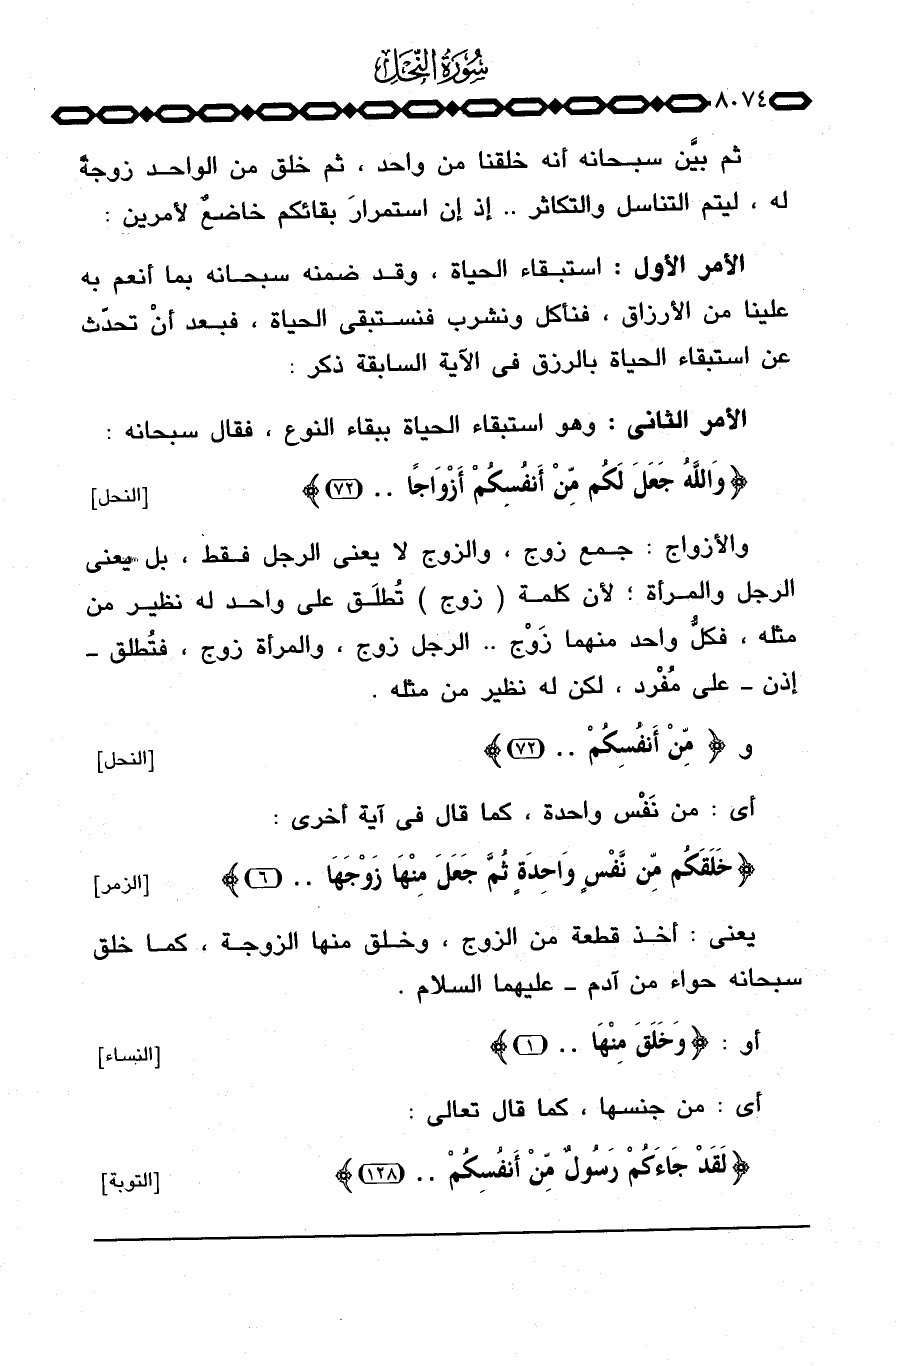 سُورَةُ النَّحْلِ
٨٠٧٤
ثم بيَّن سبحانه أنه خلقنا من واحد ، ثم خلق من الواحد زوجةً
له ، ليتم التناسل والتكاثر .. إذ إن استمرارَ بقائكم خاضعٌ لأمرين :
الأمر الأول : استبقاء الحياة ، وقد ضمنه سبحانه بما أنعم به
علينا من الأرزاق ، فنأكل ونشرب فنستبقى الحياة ، فبعد أنْ تحدّث
عن استبقاء الحياة بالرزق فى الآية السابقة ذكر :
الأمر الثانى : وهو استبقاء الحياة ببقاء النوع ، فقال سبحانه :
﴿ وَاللَّهُ جَعَلَ لَكُم مِّنْ أَنفُسِكُمْ أَزْوَاجًا .. (٧٢) ﴾ [النحل]
والأزواج : جمع زوج ، والزوج لا يعنى الرجل فقط ، بل يعنى
الرجل والمرأة ؛ لأن كلمة ( زوج ) تُطلَق على واحد له نظير من
مثله ، فكلُّ واحد منهما زَوْج .. الرجل زوج ، والمرأة زوج ، فتُطلق –
إذن – على مُفْرد ، لكن له نظير من مثله .
و ﴿ مِّنْ أَنفُسِكُمْ .. (٧٢) ﴾ [النحل]
أى : من نَفْس واحدة ، كما قال فى آية أخرى :
﴿ خَلَقَكُم مِّن نَّفْسٍ وَاحِدَةٍ ثُمَّ جَعَلَ مِنْهَا زَوْجَهَا .. (٦) ﴾ [الزمر]
يعنى : أخذ قطعة من الزوج ، وخلق منها الزوجة ، كما خلق
سبحانه حواء من آدم – عليهما السلام .
أو : ﴿ وَخَلَقَ مِنْهَا .. (١) ﴾ [النساء]
أى : من جنسها ، كما قال تعالى :
﴿ لَقَدْ جَاءَكُمْ رَسُولٌ مِّنْ أَنفُسِكُمْ .. (١٢٨) ﴾ [التوبة]